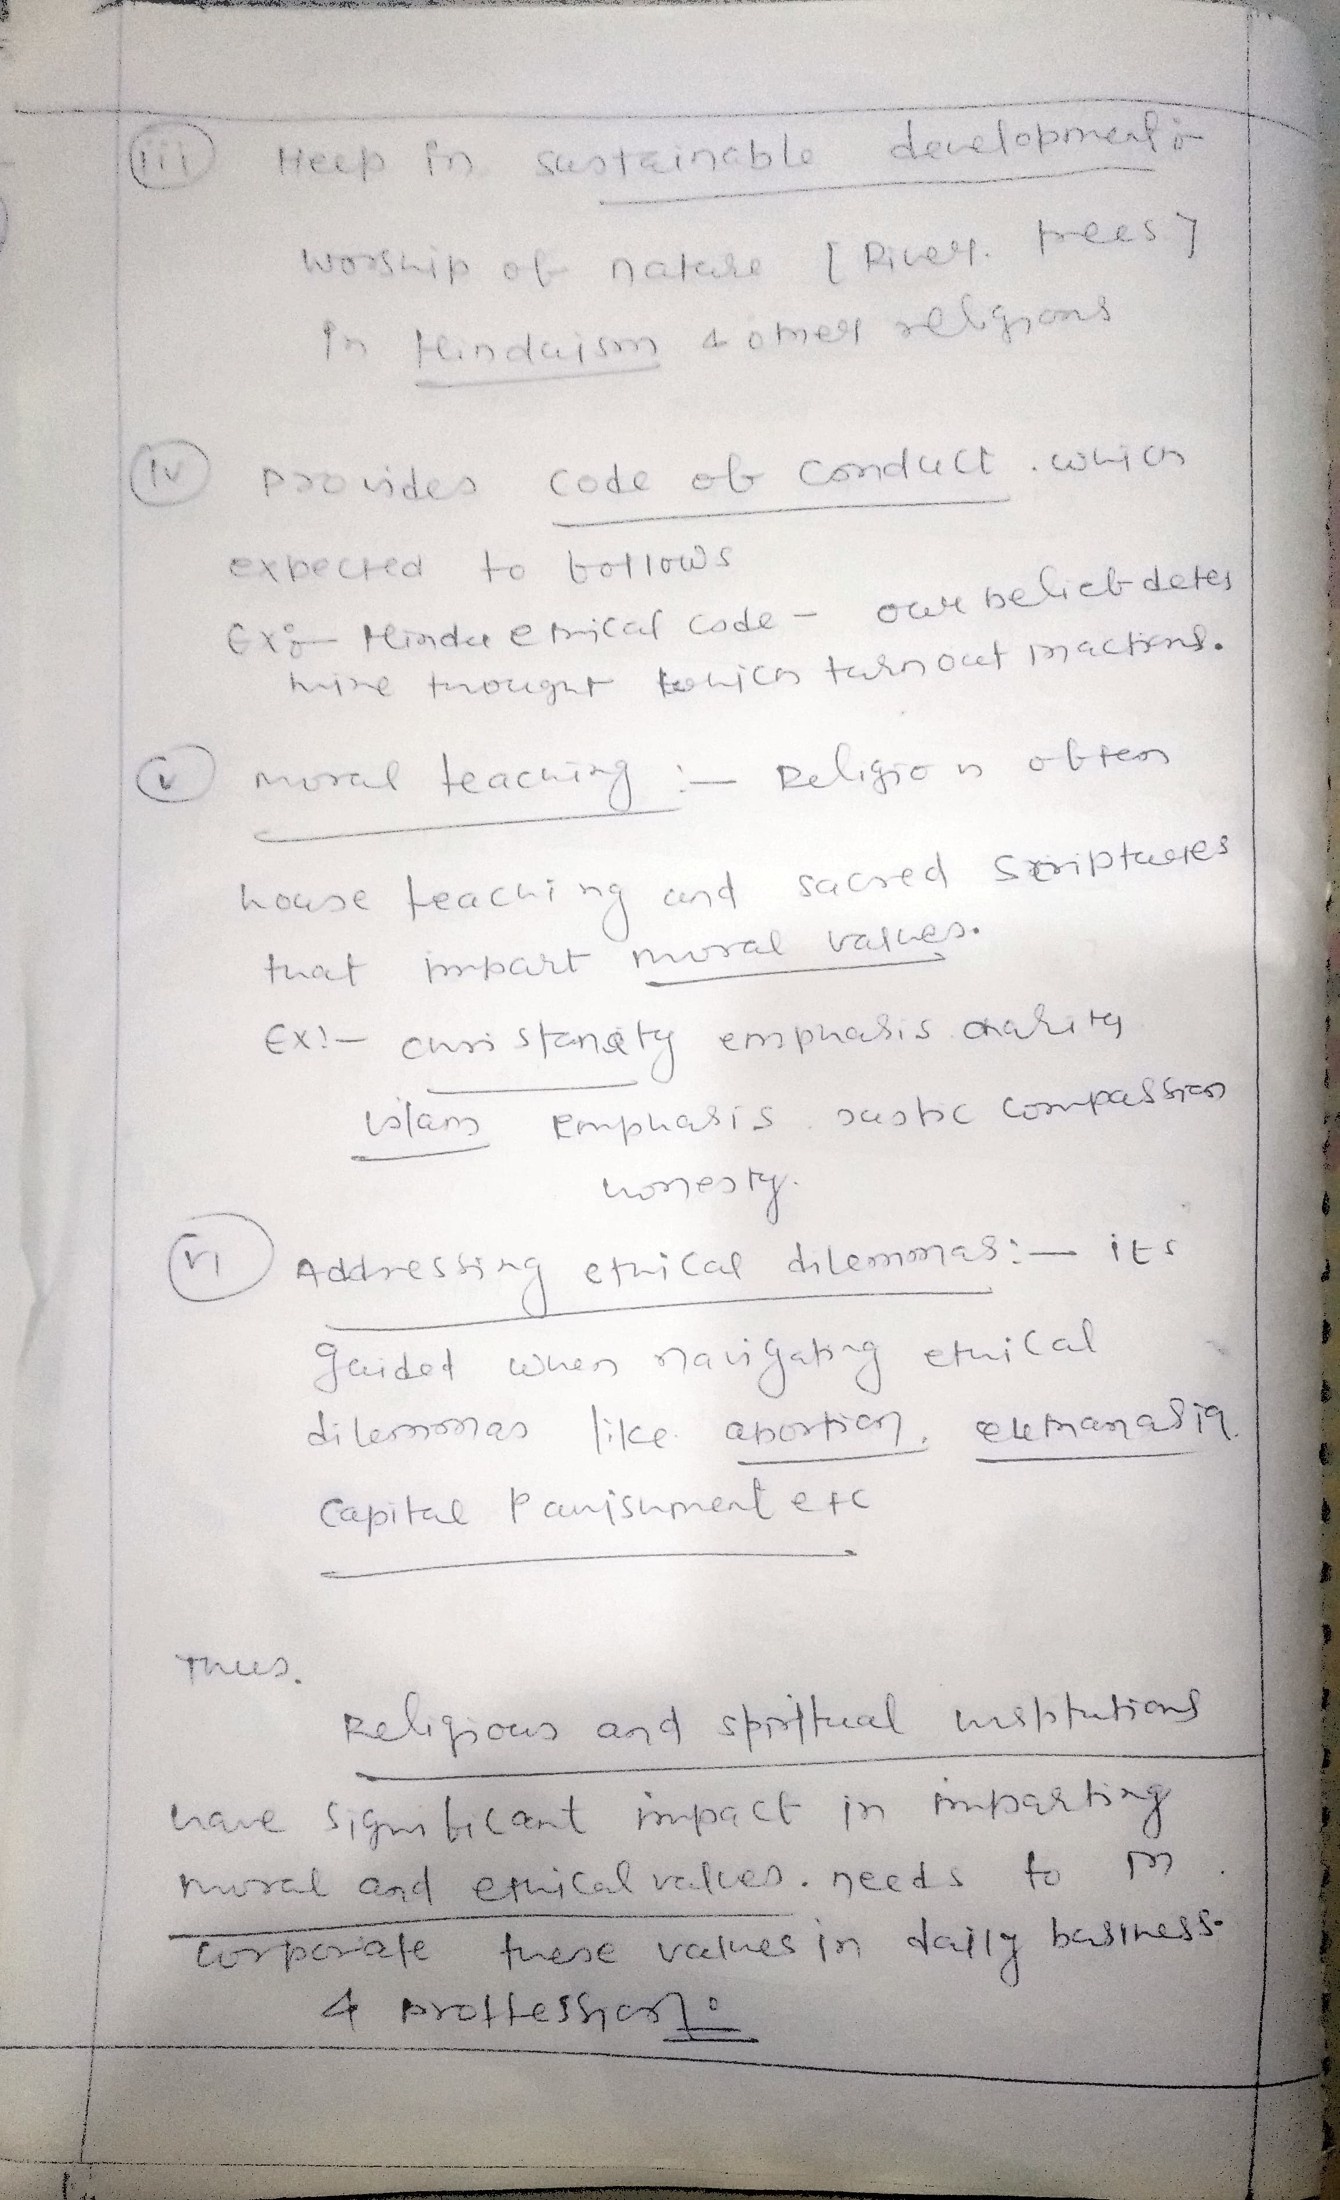 (iii) Help in sustainable development :-
worship of nature [River. trees]
in Hinduism & other religions
(iv) Provides code of conduct . which
expected to follows
Ex :- Hindu ethical code - our belief deter
mine thought which turn out in actions.
(v) Moral teaching :- Religion often
house teaching and sacred scriptures
that impart moral values.
Ex :- christanity emphasis charity
islam emphasis compassion
honesty.
(vi) Addressing ethical dilemmas :- its
guided when navigating ethical
dilemmas like abortion, euthanasia.
Capital Punishment etc
Thus.
Religious and spiritual institutions
have significant impact in imparting
moral and ethical values. needs to in
corporate these values in daily business
& proffession.